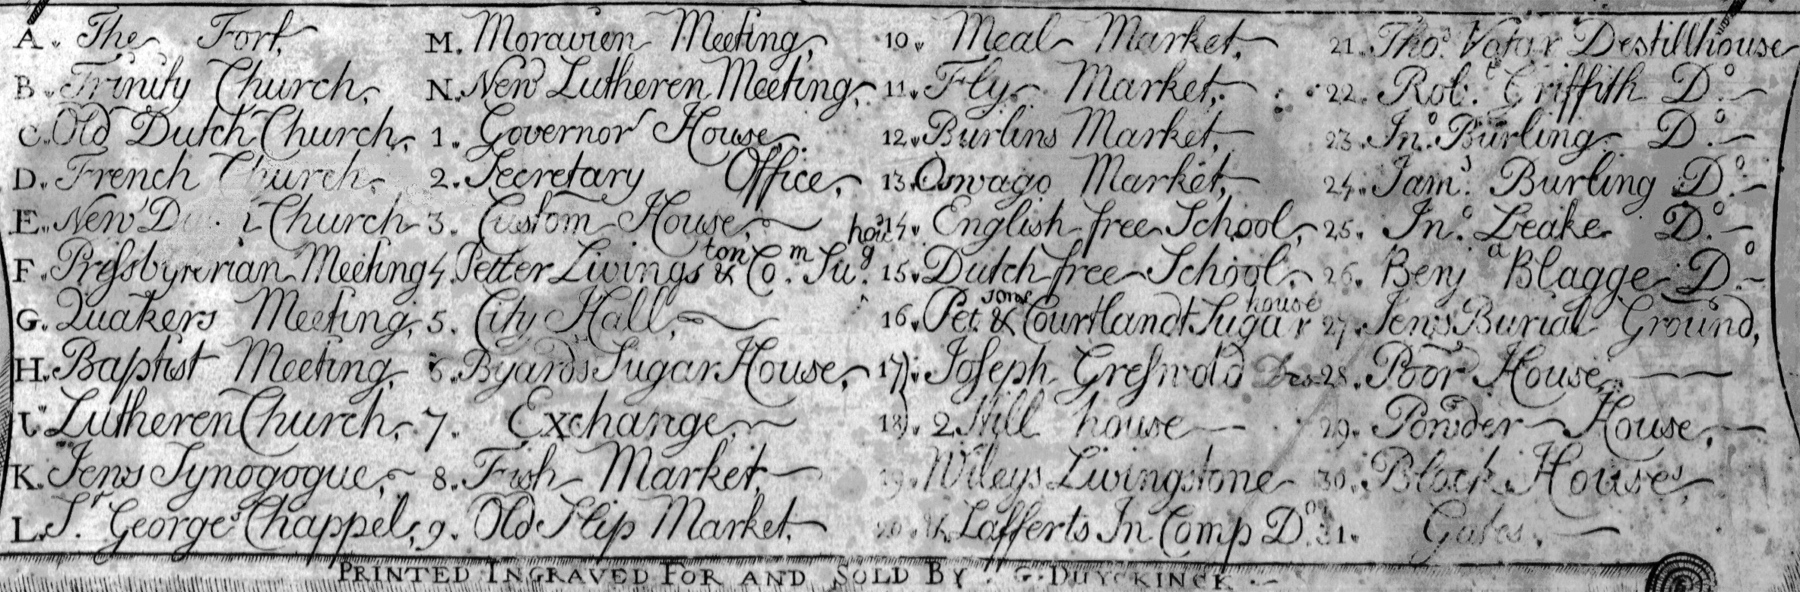 A. The Fort,
B. Trinity Church,
C. Old Dutch Church,
D. French Church,
E. New Church
F. Pressbyterian Meeting
G. Quakers Meeting,
H. Baptist Meeting,
I. Lutheren Church,
K. Jews Synogogue,
L. St. George's Chappel,
M. Moravien Meeting,
N. New Lutheren Meeting,
1. Governor House,
2. Secretary Office,
3. Custom House,
4. Petter Livingston & Com. Sug. hou
5. City Hall,
6. Byards Sugar House,
7. Exchange
8. Fish Market,
9. Old Slip Market.
10. Meal Market,
11. Fly Market,
12. Burlins Market,
13. Oswago Market,
14. English free School,
15. Dutch free School,
16. Pet. & Courtlandt Sugar house
17. Joseph Greswold
18. 2 Mill house
19. Wileys Livingstone
20. Lafferts In Comp Do.
21. Thos. Vatar Destillhouse
22. Rob. Griffith Do.
23. Jno. Burling Do.
24. Jams. Burling Do.
25. Jno. Leake Do.
26. Benj a Blagge Do.
27. Jews Burial Ground,
28. Poor House,
29. Powder House,
30. Block House,
31. Gates.
PRINTED INGRAVED FOR AND SOLD BY G. DUYCKINCK